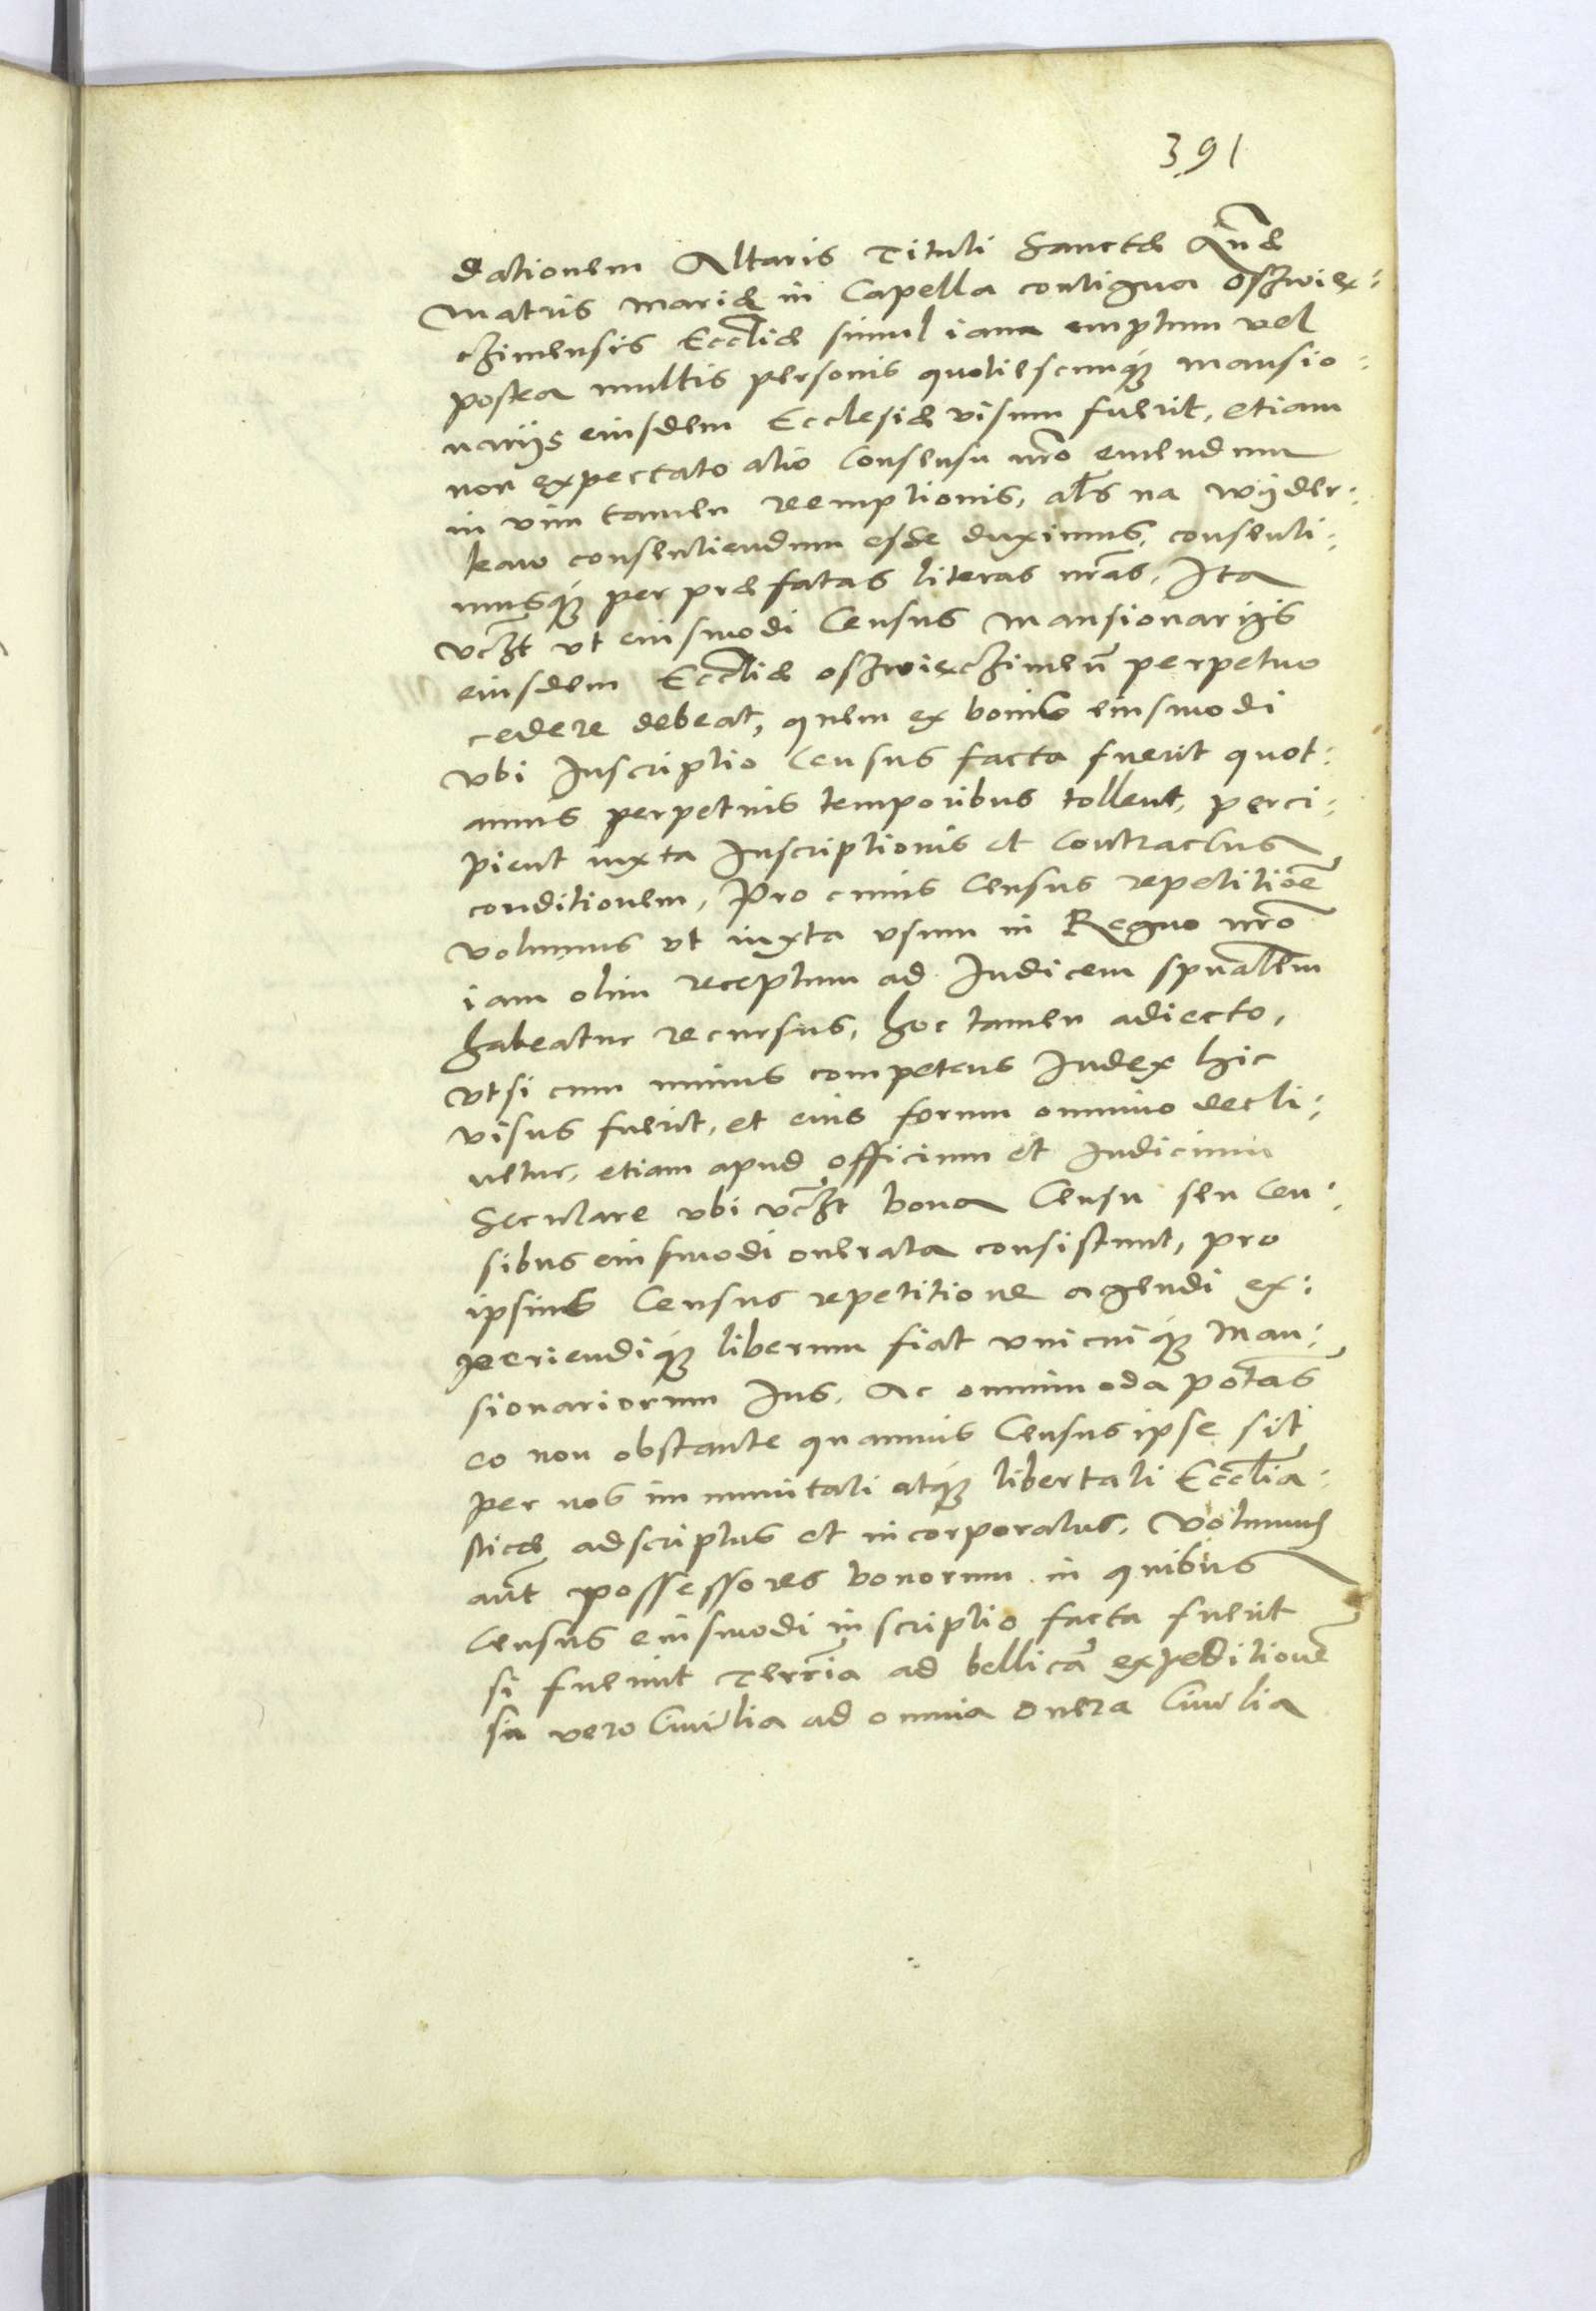 391
dationem Altaris Tituli Sanctæ Annæ
Matris Mariæ in Capella contigua Oszwiex:
czimensis Eccliæ simul iam emptum vel
postea multis personis quotiescunq́ue mansio:
narijs eiusdem Ecclesiæ visum fuerit, etiam
non expectato alio Consensu nr̃o emendum
in vim tamen reemptionis, al̃s na wyder:
kaw consentiendum esse duximus, consenti:
musq́ue per præfatas literas nr̃as. Ita
vczt vt eiusmodi Census Mansionarijs
eiusdem Eccliæ Oszwiexczimen̄ perpetuo
cedere debeat, quem ex bonis eiusmodi
vbi Inscriptio Census facta fuerit quot:
annis perpetuis temporibus tollent, perci:
pient iuxta Inscriptionis et Contractus
conditionem, Pro cuius Census repetitiõe
volumus vt iuxta vsum in Regno nr̃o
iam olim receptum ad Iudicem spũalem
habeatur recursus, hoc tamen adiecto,
vt si cum minus competens Iudex hic
visus fuerit, et eius forum omnino decli:
netur, etiam apud officium et Iudicium
Seculare vbi vczt bona Censu seu Cen:
sibus eiusmodi onerata consistunt, pro
ipsius Census repetitione agendi ex:
periendiq́ue liberum fiat vnicuiq́ue Man:
sionariorum Ius. Ac omnimoda potãs
eo non obstante quamuis Census ipse sit
per nos immunitati atq́ue libertati Ecclia:
sticæ adscriptus et incorporatus. Volumus
aũt possessores bonorum in quibus
Census eiusmodi inscriptio facta fuerit
si fuerint Terrĩa ad bellicã expeditionẽ
sin vero Ciuilia ad omnia onera Ciuilia